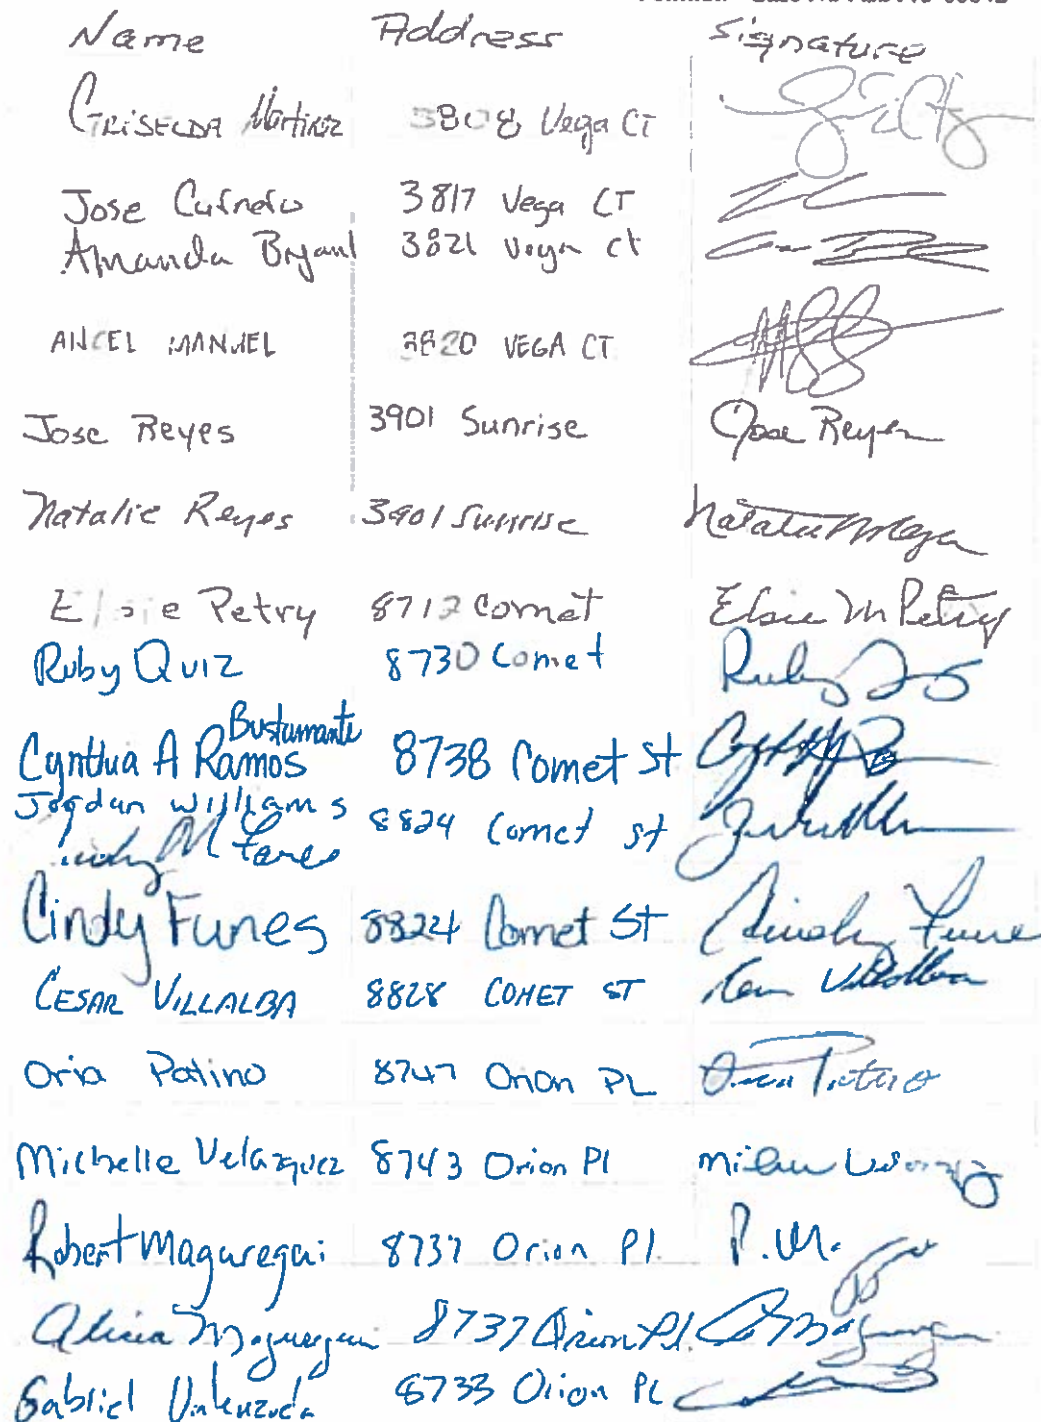 Name Address Signature
Griselda Martinez 3808 Vega CT
Jose 3817 Vega CT
Amanda Bryant 3821 Vega ct
ANGEL MANUEL 3820 VEGA CT
Jose Reyes 3901 Sunrise Jose Reyes
Natalie Reyes 3901 Sunrise Natalie
Elsie Petry 8712 Comet Elsie M Petry
Ruby Quiz 8730 Comet Ruby
Bustamante
Cynthia A Ramos 8738 Comet St
Jordan Williams 8824 Comet st
Cindy Funes 88224 Comet St Cindy Funes
CESAR VILLALBA 8828 COMET ST
Oria Patino 8747 Orion PL
Michelle Velazquez 8743 Orion Pl
Robert Maguregui 8737 Orion Pl. R.M.
Alicia Maguregui 8737 Orion Pl.
Gabriel Valenzuela 8733 Orion PL